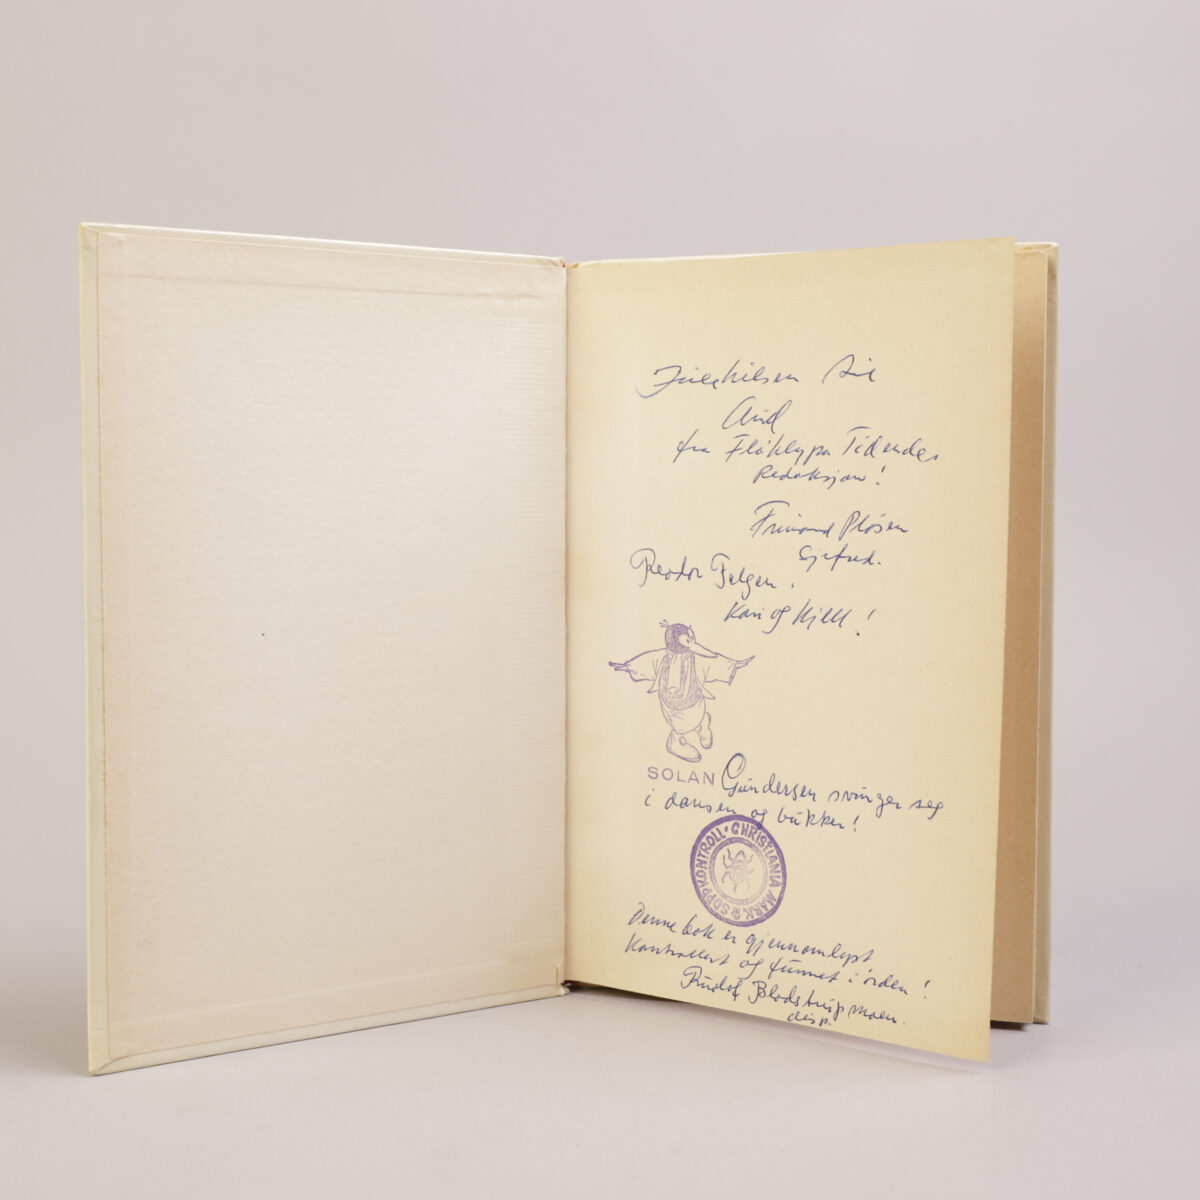 Julehilsen til
fra Flåklypa Tidendes
Redaksjon!
Frimand Pløsen
Sjefred.
Reodor Felgen.
Kari og Kjell!
SOLAN Gundersen svinger seg
i dansen og bukker!
CHRISTIANIA MARK & SOPPKONTROLL ·
Denne bok er gjennomlyst
Kontrollert og funnet i orden!
Rudolf Blodstrupmoen.
disp.